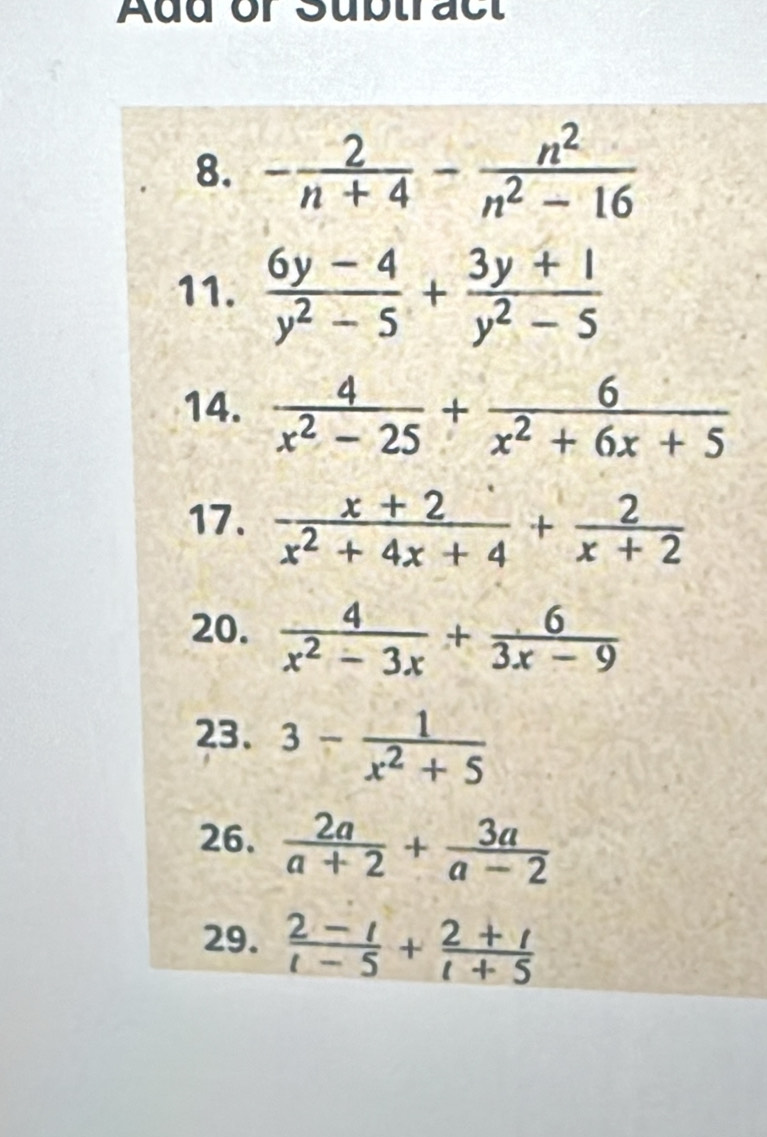 Add or Subtract
8. -\frac{2}{n + 4} - \frac{n^2}{n^2 - 16}
11. \frac{6y - 4}{y^2 - 5} + \frac{3y + 1}{y^2 - 5}
14. \frac{4}{x^2 - 25} + \frac{6}{x^2 + 6x + 5}
17. \frac{x + 2}{x^2 + 4x + 4} + \frac{2}{x + 2}
20. \frac{4}{x^2 - 3x} + \frac{6}{3x - 9}
23. 3 - \frac{1}{x^2 + 5}
26. \frac{2a}{a + 2} + \frac{3a}{a - 2}
29. \frac{2 - t}{t - 5} + \frac{2 + t}{t + 5}